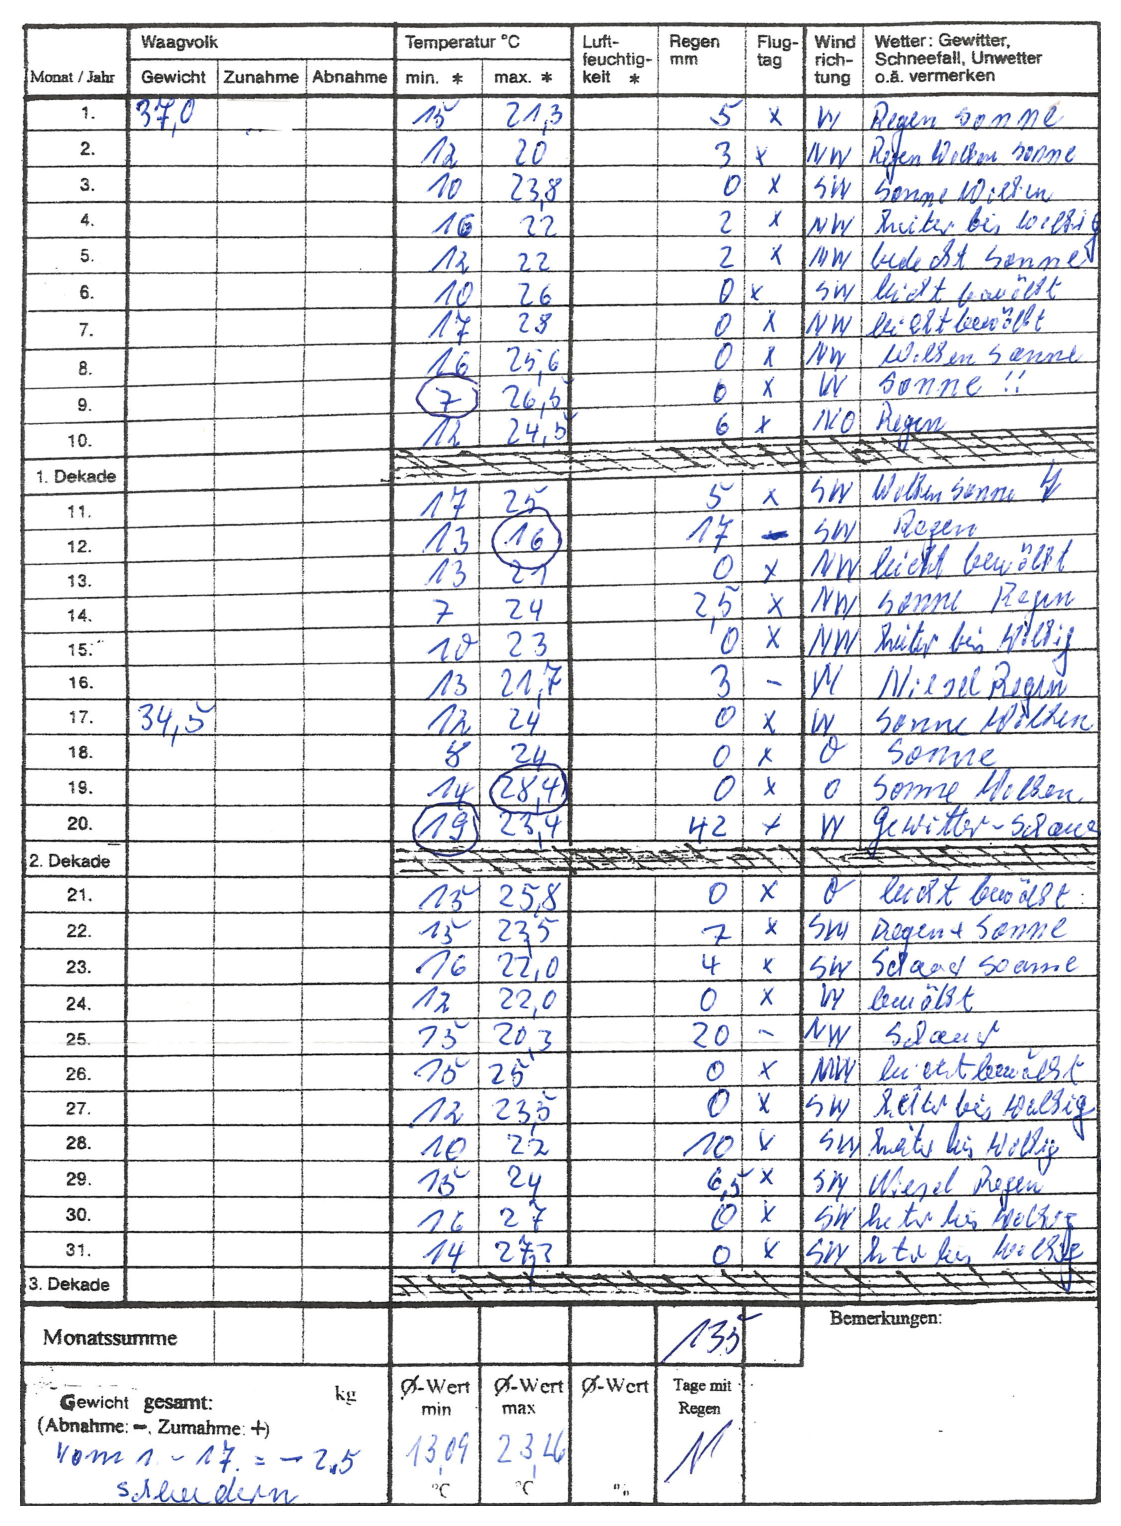 Waagvolk Temperatur °C Luft- Regen Flug- Wind Wetter: Gewitter,
feuchtig- mm tag rich- Schneefall, Unwetter
Monat / Jahr Gewicht Zunahme Abnahme min. * max. * keit * tung o.ä. vermerken
1. 37,0 15 21,3 5 x W Regen Sonne
2. 12 20 3 x NW Regen Wolken Sonne
3. 10 23,8 0 x SW Sonne Wolken
4. 16 22 2 x NW heiter bis wolkig
5. 12 22 2 x NW bedeckt Sonne
6. 10 26 0 x SW leicht bewölkt
7. 17 28 0 x NW leicht bewölkt
8. 16 25,6 0 x NW Wolken Sonne
9. 7 26,5 0 x W Sonne !!
10. 12 24,5 6 x NO Regen
1. Dekade
11. 17 25 5 x SW Wolken Sonne
12. 13 16 17 - SW Regen
13. 13 21 0 x NW leicht bewölkt
14. 7 24 2,5 x NW Sonne Regen
15. 10 23 0 x NW heiter bis wolkig
16. 13 21,7 3 - W Niesel Regen
17. 34,5 12 24 0 x W Sonne Wolken
18. 8 24 0 x O Sonne
19. 14 28,4 0 x O Sonne Wolken
20. 19 23,4 42 x W Gewitter-Schauer
2. Dekade
21. 15 25,8 0 x O leicht bewölkt
22. 15 23,5 7 x SW Regen + Sonne
23. 16 22,0 4 x SW Schauer Sonne
24. 12 22,0 0 x W bewölkt
25. 15 20,3 20 - NW Schauer
26. 15 25 0 x NW leicht bewölkt
27. 12 23,5 0 x SW heiter bis wolkig
28. 10 22 10 x SW heiter bis wolkig
29. 15 24 6,5 x SW Niesel Regen
30. 16 27 0 x SW heiter bis wolkig
31. 14 0 x SW heiter bis wolkig
3. Dekade
Monatssumme 135 Bemerkungen:
Gewicht gesamt: kg Ø-Wert Ø-Wert Ø-Wert Tage mit
(Abnahme: -, Zumahme: +) min max Regen
vom 1. - 17. = - 2,5 13,09 23,46
schleudern °C °C %